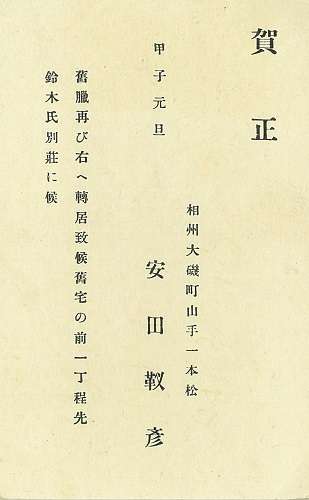 賀正
甲子元旦
相州大磯町山手一本松
安田靫彦
舊臘再び右へ轉居致候舊宅の前一丁程先
鈴木氏別莊に候